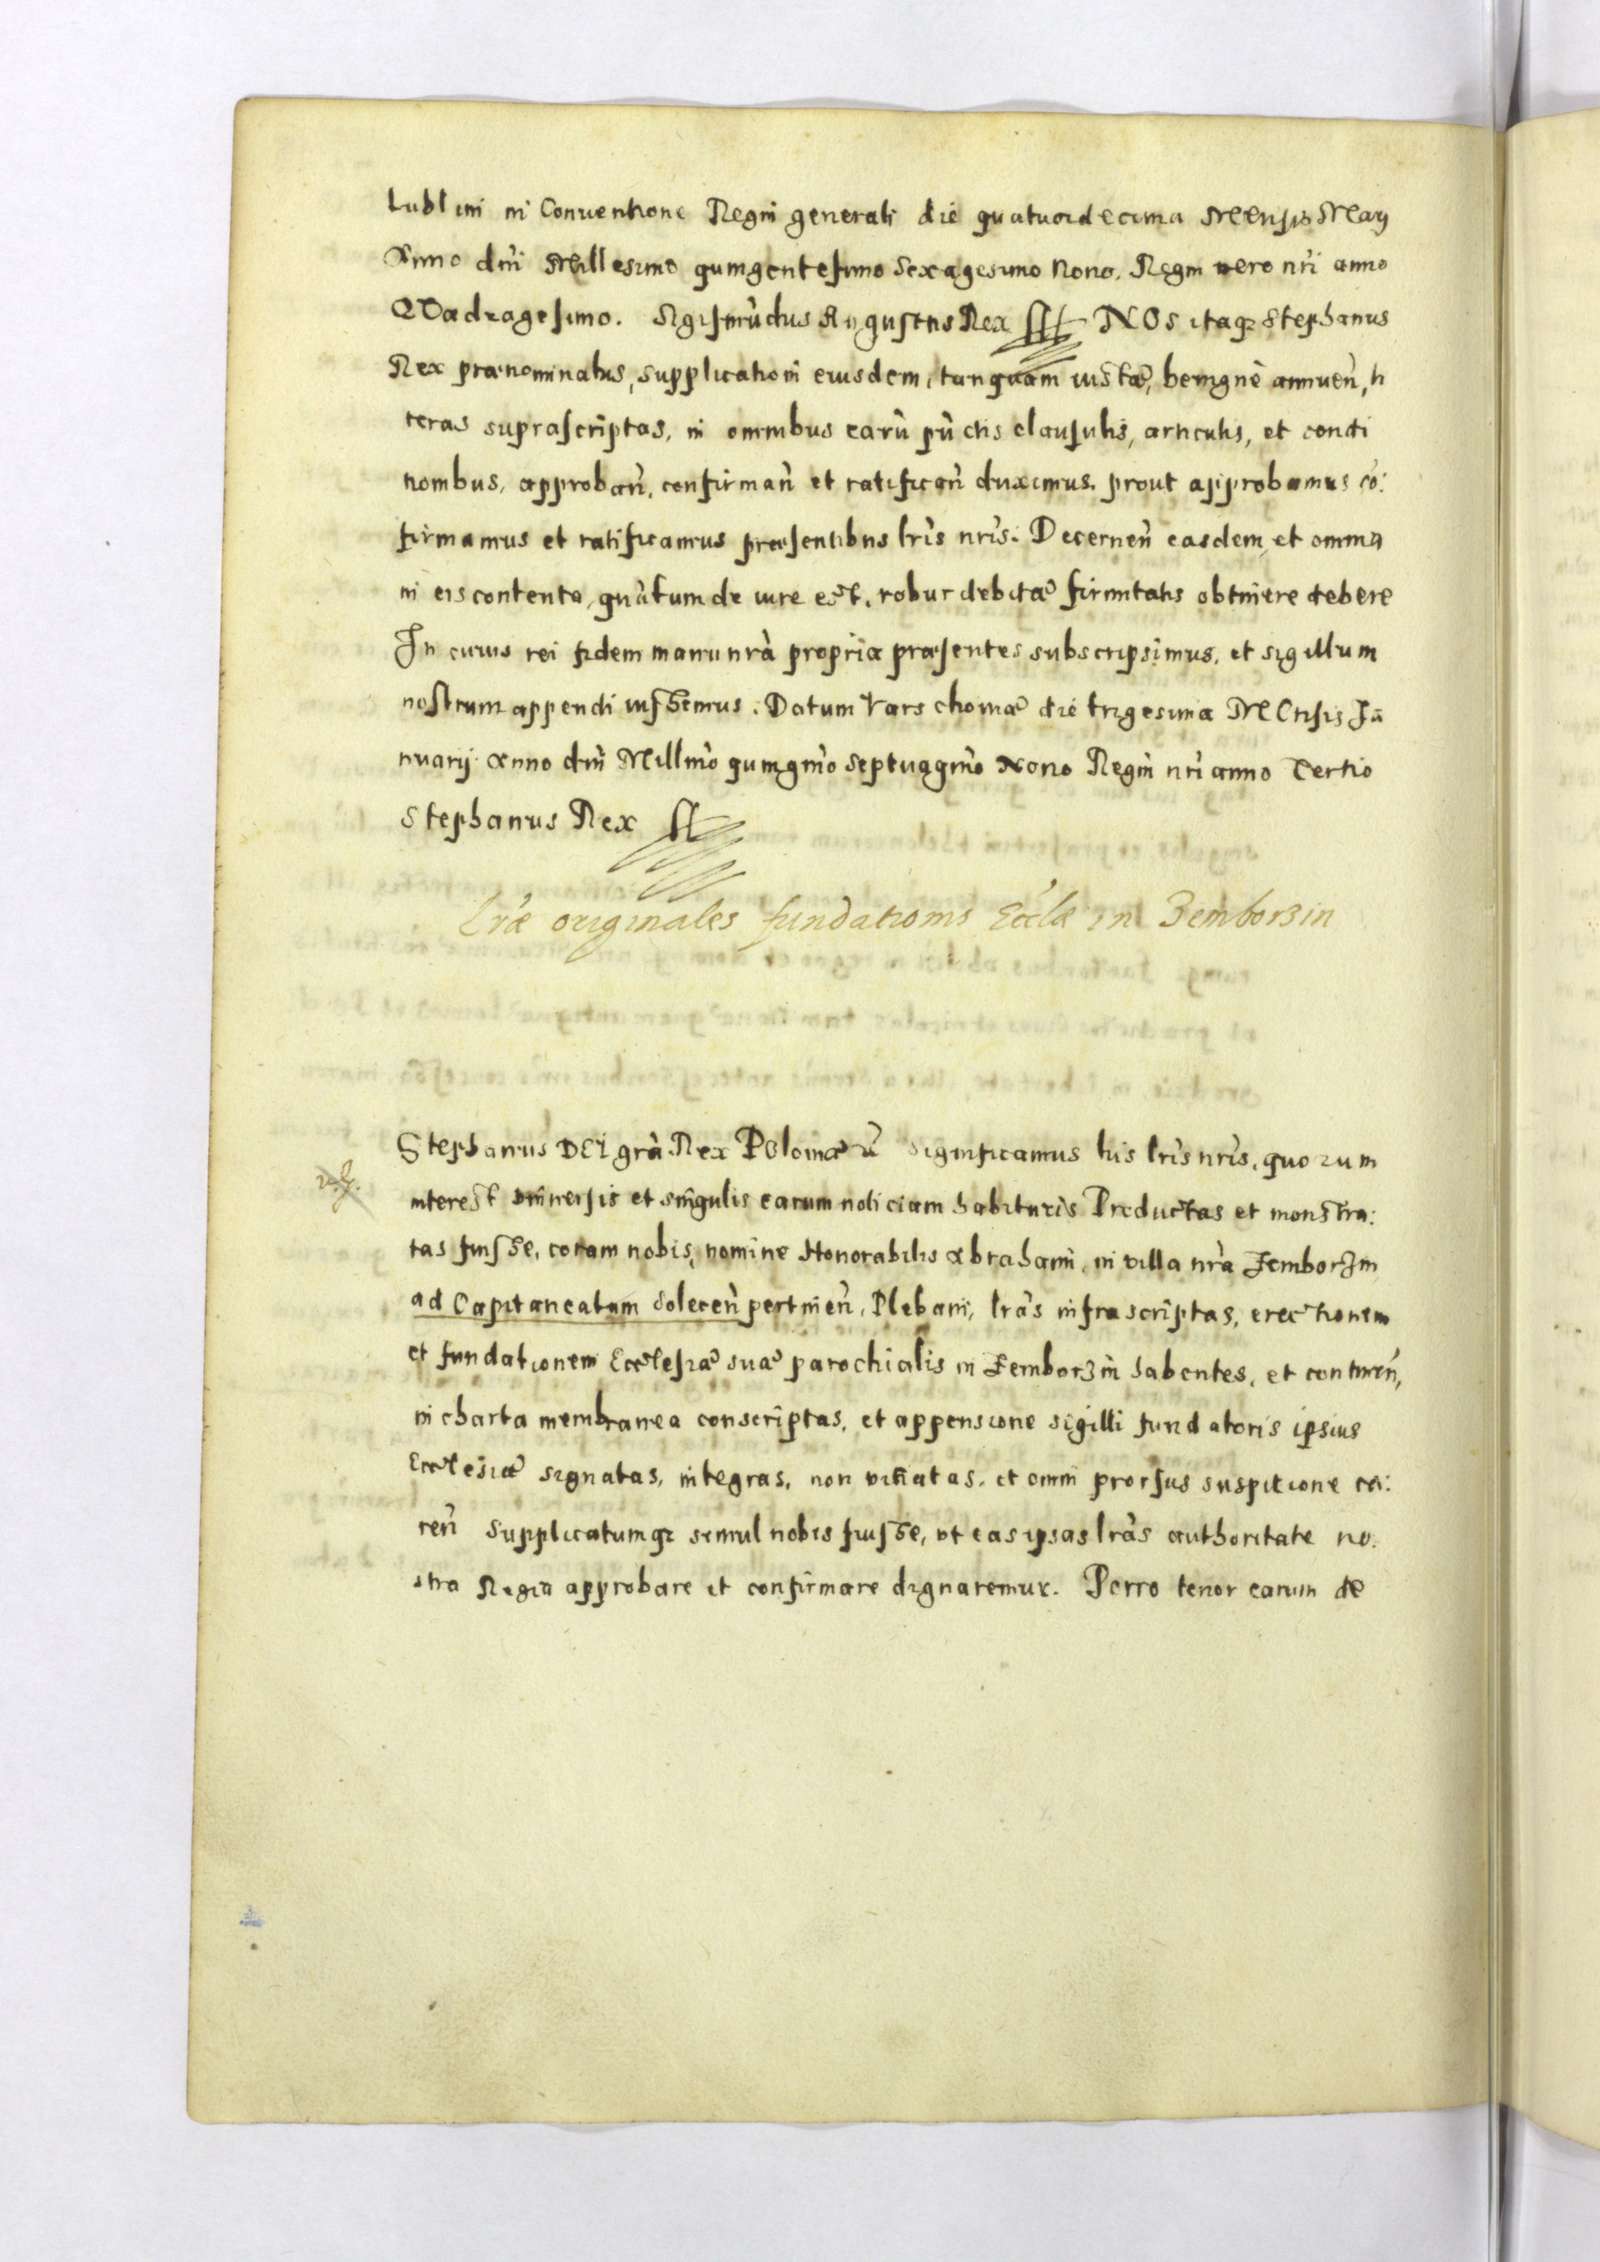 Lublini in Conuentione Regni generali die quatuordecima MEnsis Maij
Anno dni Millesimo quingentesimo Sexagesimo Nono. Regni vero nri anno
QVadragesimo. Sigismūdus Augustus Rex NOs itaqz Stephanus
Rex prænominatus, supplicationi eiusdem, tanquam iustæ, benignè annuen, li
teras suprascriptas, in omnibus earū pūctis clausulis, articulis, et condi
tionibus, approban, confirman et ratifican duximus. prout approbamus cō:
firmamus et ratificamus præsentibus lris nris. Decernen easdem, et omnia
in eis contenta, quātum de iure est, robur debitæ firmitatis obtinere debere
In cuius rei fidem manu nrà propria præsentes subscripsimus, et sigillum
nostrum appendi iussimus. Datum Varschouiæ die trigesima MEnsis Ja
nuarij Anno dni Millmo quingmo Septuagmo Nono Regni nri anno Tertio
Stephanus Rex
Lræ originales fundationis Eccłæ in Zemborzin
Stephanus DEI grà Rex POloniæ &c Significamus his lris nris, quorum
interest vniuersis et singulis earum noticiam habituris Productas et monstra:
tas fuisse, coram nobis, nomine Honorabilis Abrahami, in villa nrà Zemborzin
ad Capitaneatum Solecen pertinen, Plebani, lràs infrascriptas, erectionem
et fundationem Ecclesiæ suæ parochialis in Zemborzin habentes, et continen,
in charta membranea conscriptas, et appensione sigilli fundatoris ipsius
Ecclesiæ signatas, integras, non vitiatas, et omni prorsus suspitione ca:
ren Supplicatumqz simul nobis fuisse, vt eas ipsas lràs authoritate no:
stra Regia approbare et confirmare dignaremur. Porro tenor earum de